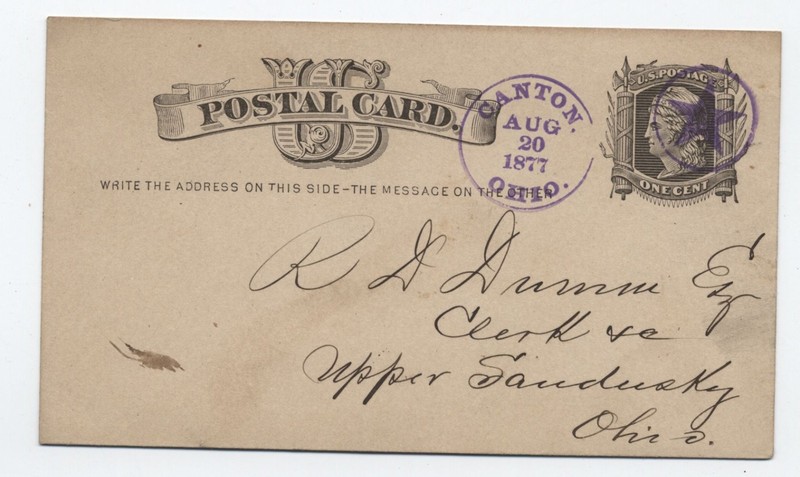 US
POSTAL CARD.
WRITE THE ADDRESS ON THIS SIDE–THE MESSAGE ON THE OTHER
CANTON.
AUG
20
1877
OHIO.
U.S. POSTAGE
ONE CENT
R D Dumm Esq
Clerk &c
Upper Sandusky
Ohio.